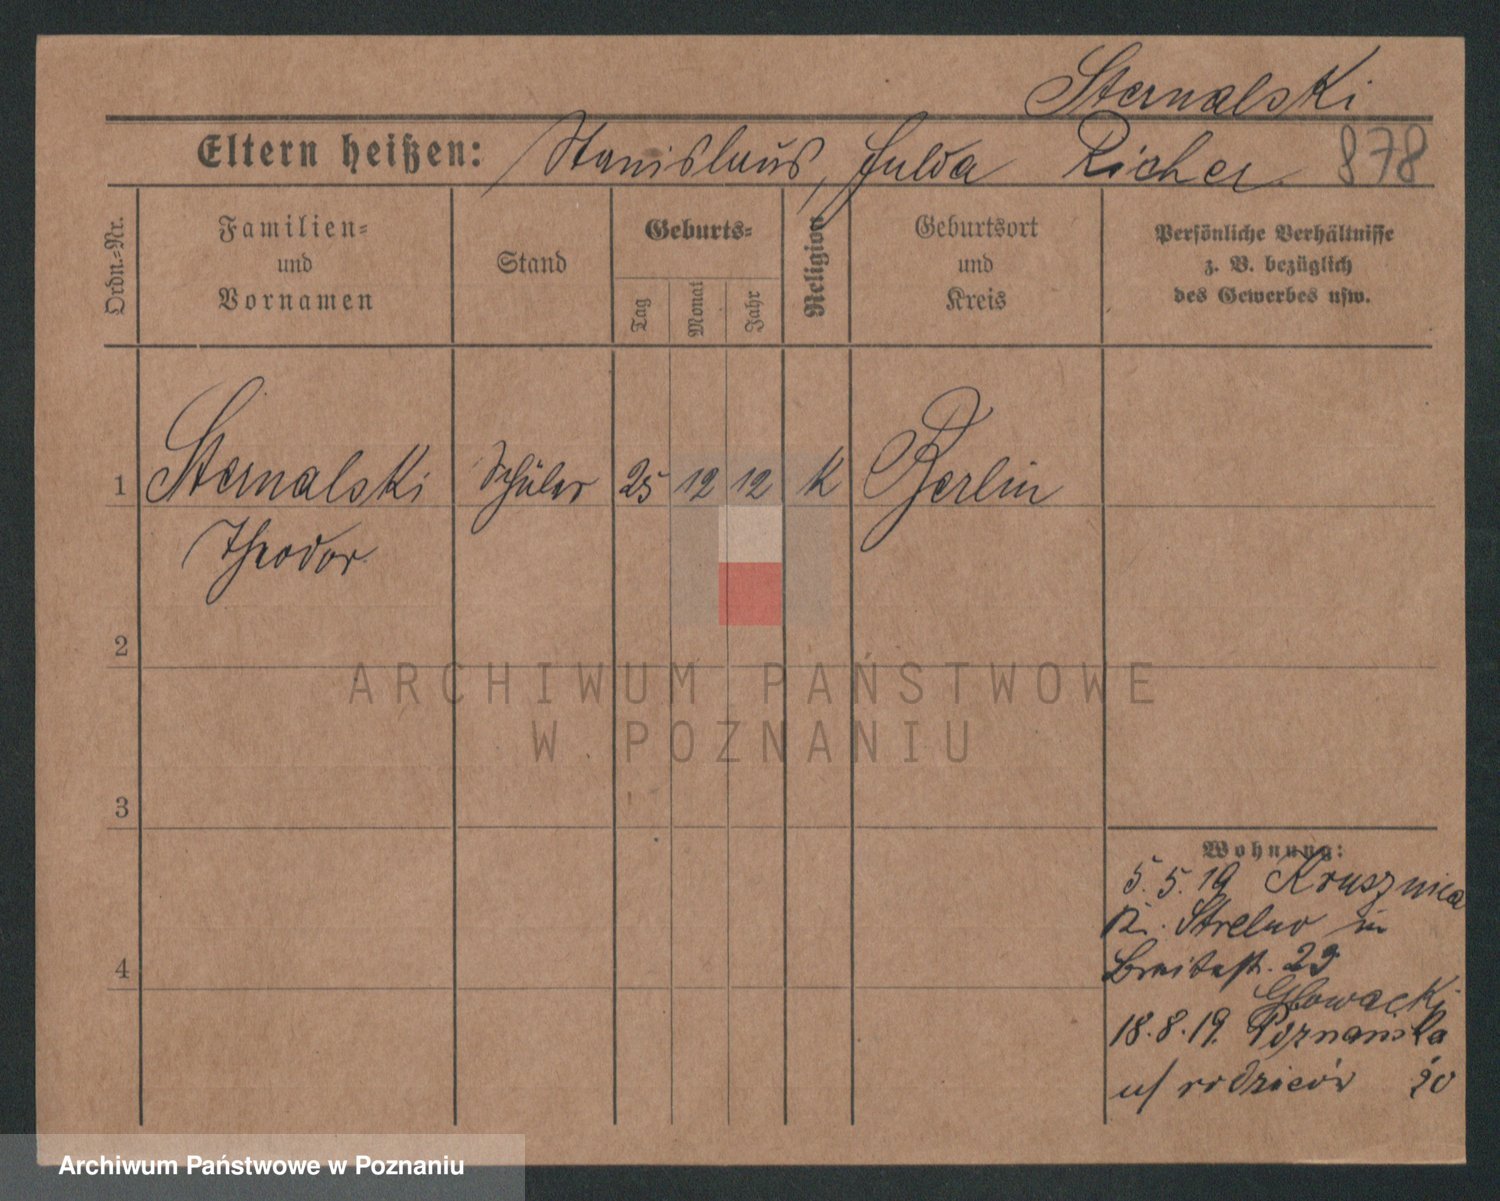 Sternalski
Eltern heißen: Stanislaus, Hulda Richer 878
Ordn.-Nr.
Familien-
und
Vornamen
Stand
Geburts-
Tag
Monat
Jahr
Religion
Geburtsort
und
Kreis
Persönliche Verhältnisse
z. B. bezüglich
des Gewerbes usw.
1 Sternalski Schüler 25 12 12 K Berlin
Theodor
2
3
4
Wohnung:
5.5.19 Krusznica
K. Strelno in
Breitestr. 29
Głowacki
18.8.19. Poznańska
u/ rodziców 20
ARCHIWUM PAŃSTWOWE
W POZNANIU
Archiwum Państwowe w Poznaniu